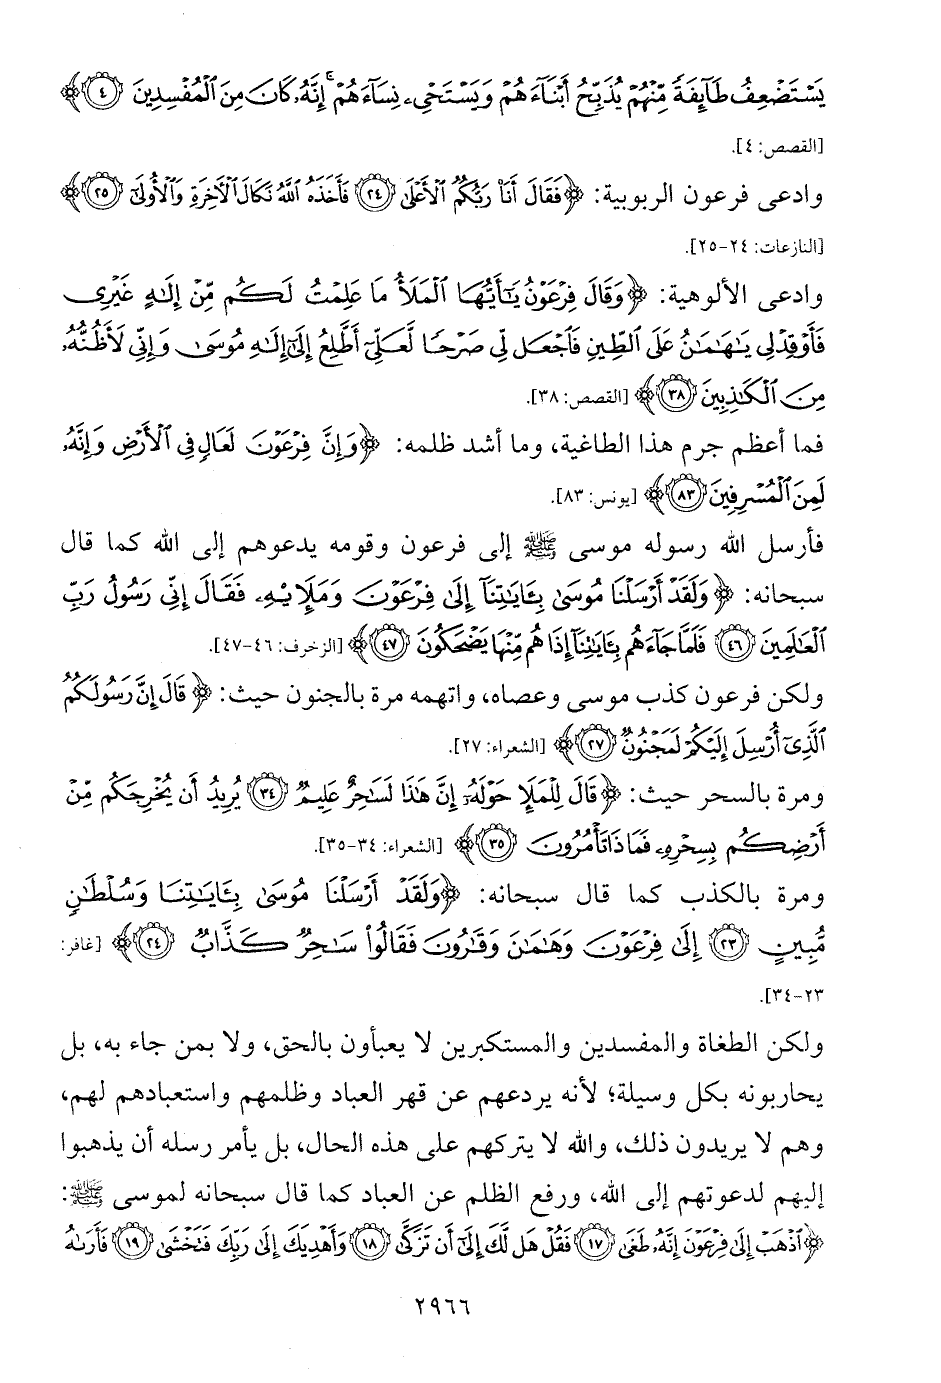 يَسْتَضْعِفُ طَآئِفَةً مِّنْهُمْ يُذَبِّحُ أَبْنَآءَهُمْ وَيَسْتَحْىِۦ نِسَآءَهُمْ ۚ إِنَّهُۥ كَانَ مِنَ ٱلْمُفْسِدِينَ ﴿٤﴾
[القصص: ٤].
وادعى فرعون الربوبية: ﴿فَقَالَ أَنَا۠ رَبُّكُمُ ٱلْأَعْلَىٰ ﴿٢٤﴾ فَأَخَذَهُ ٱللَّهُ نَكَالَ ٱلْأَخِرَةِ وَٱلْأُولَىٰٓ ﴿٢٥﴾﴾
[النازعات: ٢٤-٢٥].
وادعى الألوهية: ﴿وَقَالَ فِرْعَوْنُ يَٰٓأَيُّهَا ٱلْمَلَأُ مَا عَلِمْتُ لَكُم مِّنْ إِلَٰهٍ غَيْرِى
فَأَوْقِدْ لِى يَٰهَٰمَٰنُ عَلَى ٱلطِّينِ فَٱجْعَل لِّى صَرْحًا لَّعَلِّىٓ أَطَّلِعُ إِلَىٰٓ إِلَٰهِ مُوسَىٰ وَإِنِّى لَأَظُنُّهُۥ
مِنَ ٱلْكَٰذِبِينَ ﴿٣٨﴾﴾ [القصص: ٣٨].
فما أعظم جرم هذا الطاغية، وما أشد ظلمه: ﴿وَإِنَّ فِرْعَوْنَ لَعَالٍ فِى ٱلْأَرْضِ وَإِنَّهُۥ
لَمِنَ ٱلْمُسْرِفِينَ ﴿٨٣﴾﴾ [يونس: ٨٣].
فأرسل الله رسوله موسى ﷺ إلى فرعون وقومه يدعوهم إلى الله كما قال
سبحانه: ﴿وَلَقَدْ أَرْسَلْنَا مُوسَىٰ بِـَٔايَٰتِنَآ إِلَىٰ فِرْعَوْنَ وَمَلَإِي۟هِۦ فَقَالَ إِنِّى رَسُولُ رَبِّ
ٱلْعَٰلَمِينَ ﴿٤٦﴾ فَلَمَّا جَآءَهُم بِـَٔايَٰتِنَآ إِذَا هُم مِّنْهَا يَضْحَكُونَ ﴿٤٧﴾﴾ [الزخرف: ٤٦-٤٧].
ولكن فرعون كذب موسى وعصاه، واتهمه مرة بالجنون حيث: ﴿قَالَ إِنَّ رَسُولَكُمُ
ٱلَّذِىٓ أُرْسِلَ إِلَيْكُمْ لَمَجْنُونٌ ﴿٢٧﴾﴾ [الشعراء: ٢٧].
ومرة بالسحر حيث: ﴿قَالَ لِلْمَلَإِ حَوْلَهُۥٓ إِنَّ هَٰذَا لَسَٰحِرٌ عَلِيمٌ ﴿٣٤﴾ يُرِيدُ أَن يُخْرِجَكُم مِّنْ
أَرْضِكُم بِسِحْرِهِۦ فَمَاذَا تَأْمُرُونَ ﴿٣٥﴾﴾ [الشعراء: ٣٤-٣٥].
ومرة بالكذب كما قال سبحانه: ﴿وَلَقَدْ أَرْسَلْنَا مُوسَىٰ بِـَٔايَٰتِنَا وَسُلْطَٰنٍ
مُّبِينٍ ﴿٢٣﴾ إِلَىٰ فِرْعَوْنَ وَهَٰمَٰنَ وَقَٰرُونَ فَقَالُوا۟ سَٰحِرٌ كَذَّابٌ ﴿٢٤﴾﴾ [غافر:
٢٣-٣٤].
ولكن الطغاة والمفسدين والمستكبرين لا يعبأون بالحق، ولا بمن جاء به، بل
يحاربونه بكل وسيلة؛ لأنه يردعهم عن قهر العباد وظلمهم واستعبادهم لهم،
وهم لا يريدون ذلك، والله لا يتركهم على هذه الحال، بل يأمر رسله أن يذهبوا
إليهم لدعوتهم إلى الله، ورفع الظلم عن العباد كما قال سبحانه لموسى ﷺ:
﴿ٱذْهَبْ إِلَىٰ فِرْعَوْنَ إِنَّهُۥ طَغَىٰ ﴿١٧﴾ فَقُلْ هَل لَّكَ إِلَىٰٓ أَن تَزَكَّىٰ ﴿١٨﴾ وَأَهْدِيَكَ إِلَىٰ رَبِّكَ فَتَخْشَىٰ ﴿١٩﴾ فَأَرَىٰهُ
٢٩٦٦